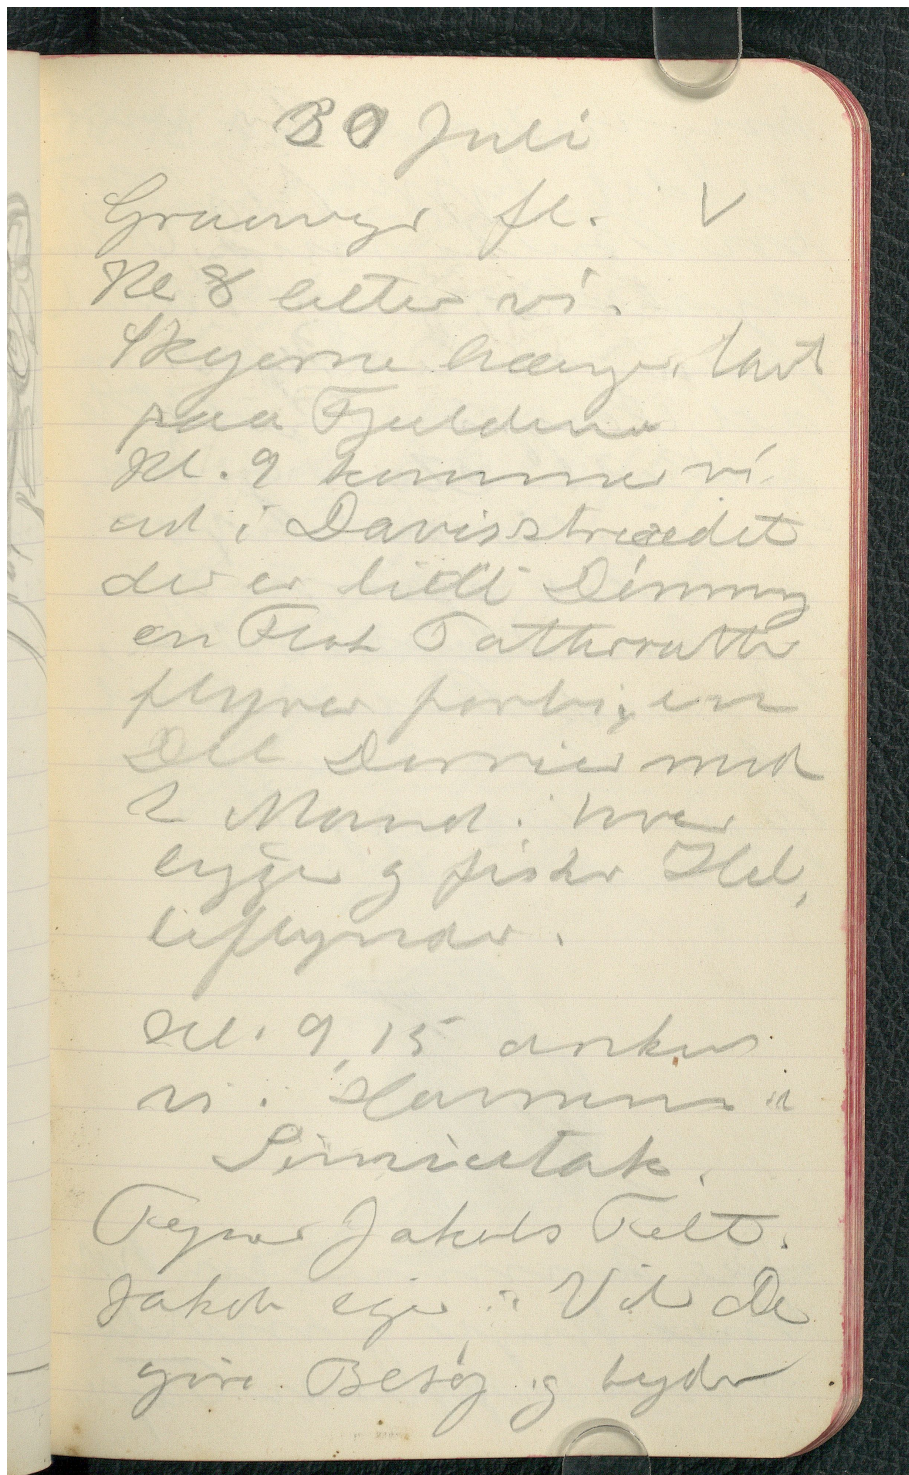 30 Juli
Graavejr fl. V
Kl 8 letter vi.
Skyerne hænger lavt
paa Fjeldene
Kl. 9 kommer vi
ud i Davisstrædet
der er lidt Dønning
en Flok Tatteratter
flyver forbi, en
Del Dorrier med
2 Mand i hver
ligger og fisker Hel,
leflynder.
Kl. 9,15 ankrer
vi i Havnen "
Simiutak.
Tegner Jakobs Telt.
Jakob siger: "Vil De
gøre Besøg og byder